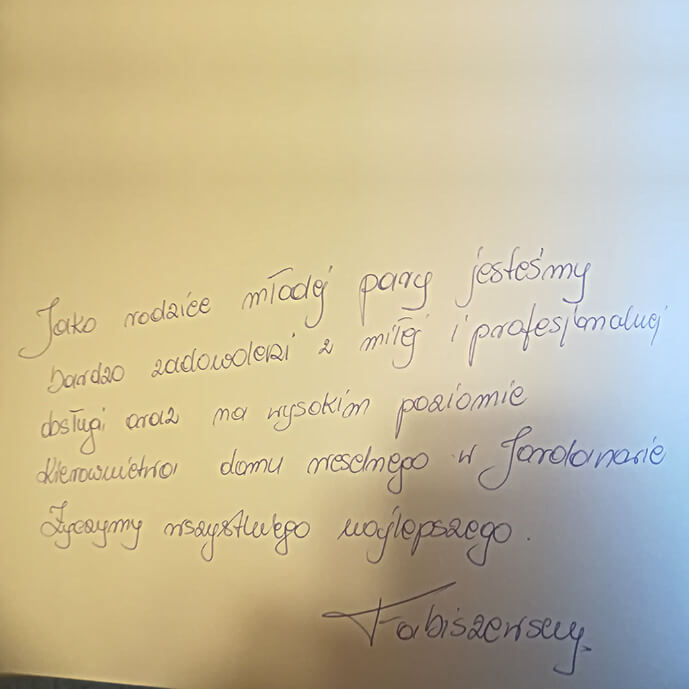 Jako rodzice młodej pary jesteśmy
bardzo zadowoleni z miłej i profesjonalnej
obsługi oraz na wysokim poziomie
kierownictwa domu weselnego w
Życzymy wszystkiego najlepszego.
Fabiszewscy